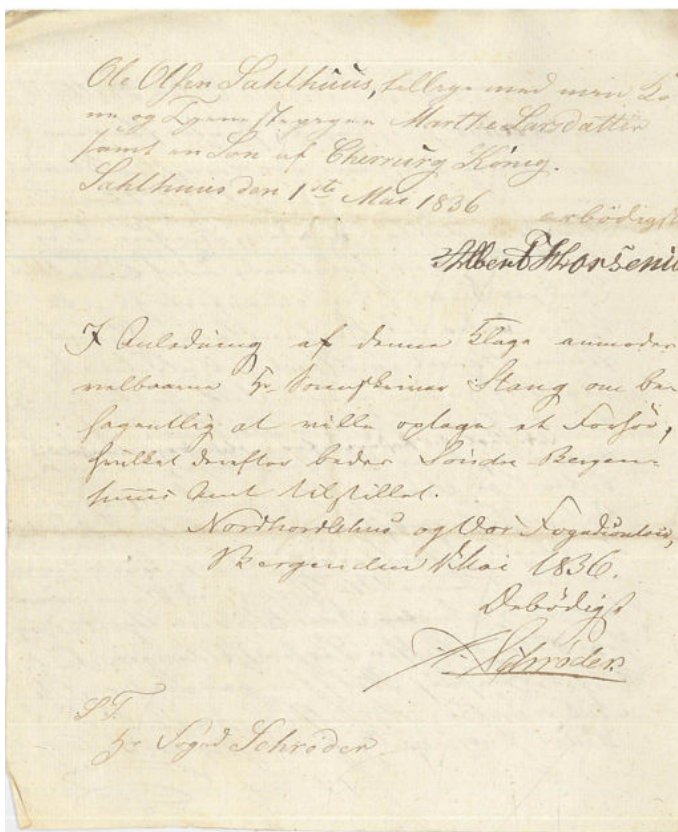 Ole Olsen Sahlhuus, tillige med min Ko-
ne og Tjenestepigen Marthe Larsdatter
samt en Søn af Cherrurg König.
Sahlhuus den 1ste Mai 1836
ærbödigst
Albert
I Anledning af denne Klage anmodes
velbaarne Hr. Sorenskriver Stang om be-
hagentlig at ville optage et Forhör,
hvilket derefter bedes Söndre Bergen-
huus Amt tilstillet.
Nordhordlehns og Vos Fogedcontoir,
Bergen den Mai 1836.
Ærbödigst
Schröder.
S. T.
Hr Foged Schröder.